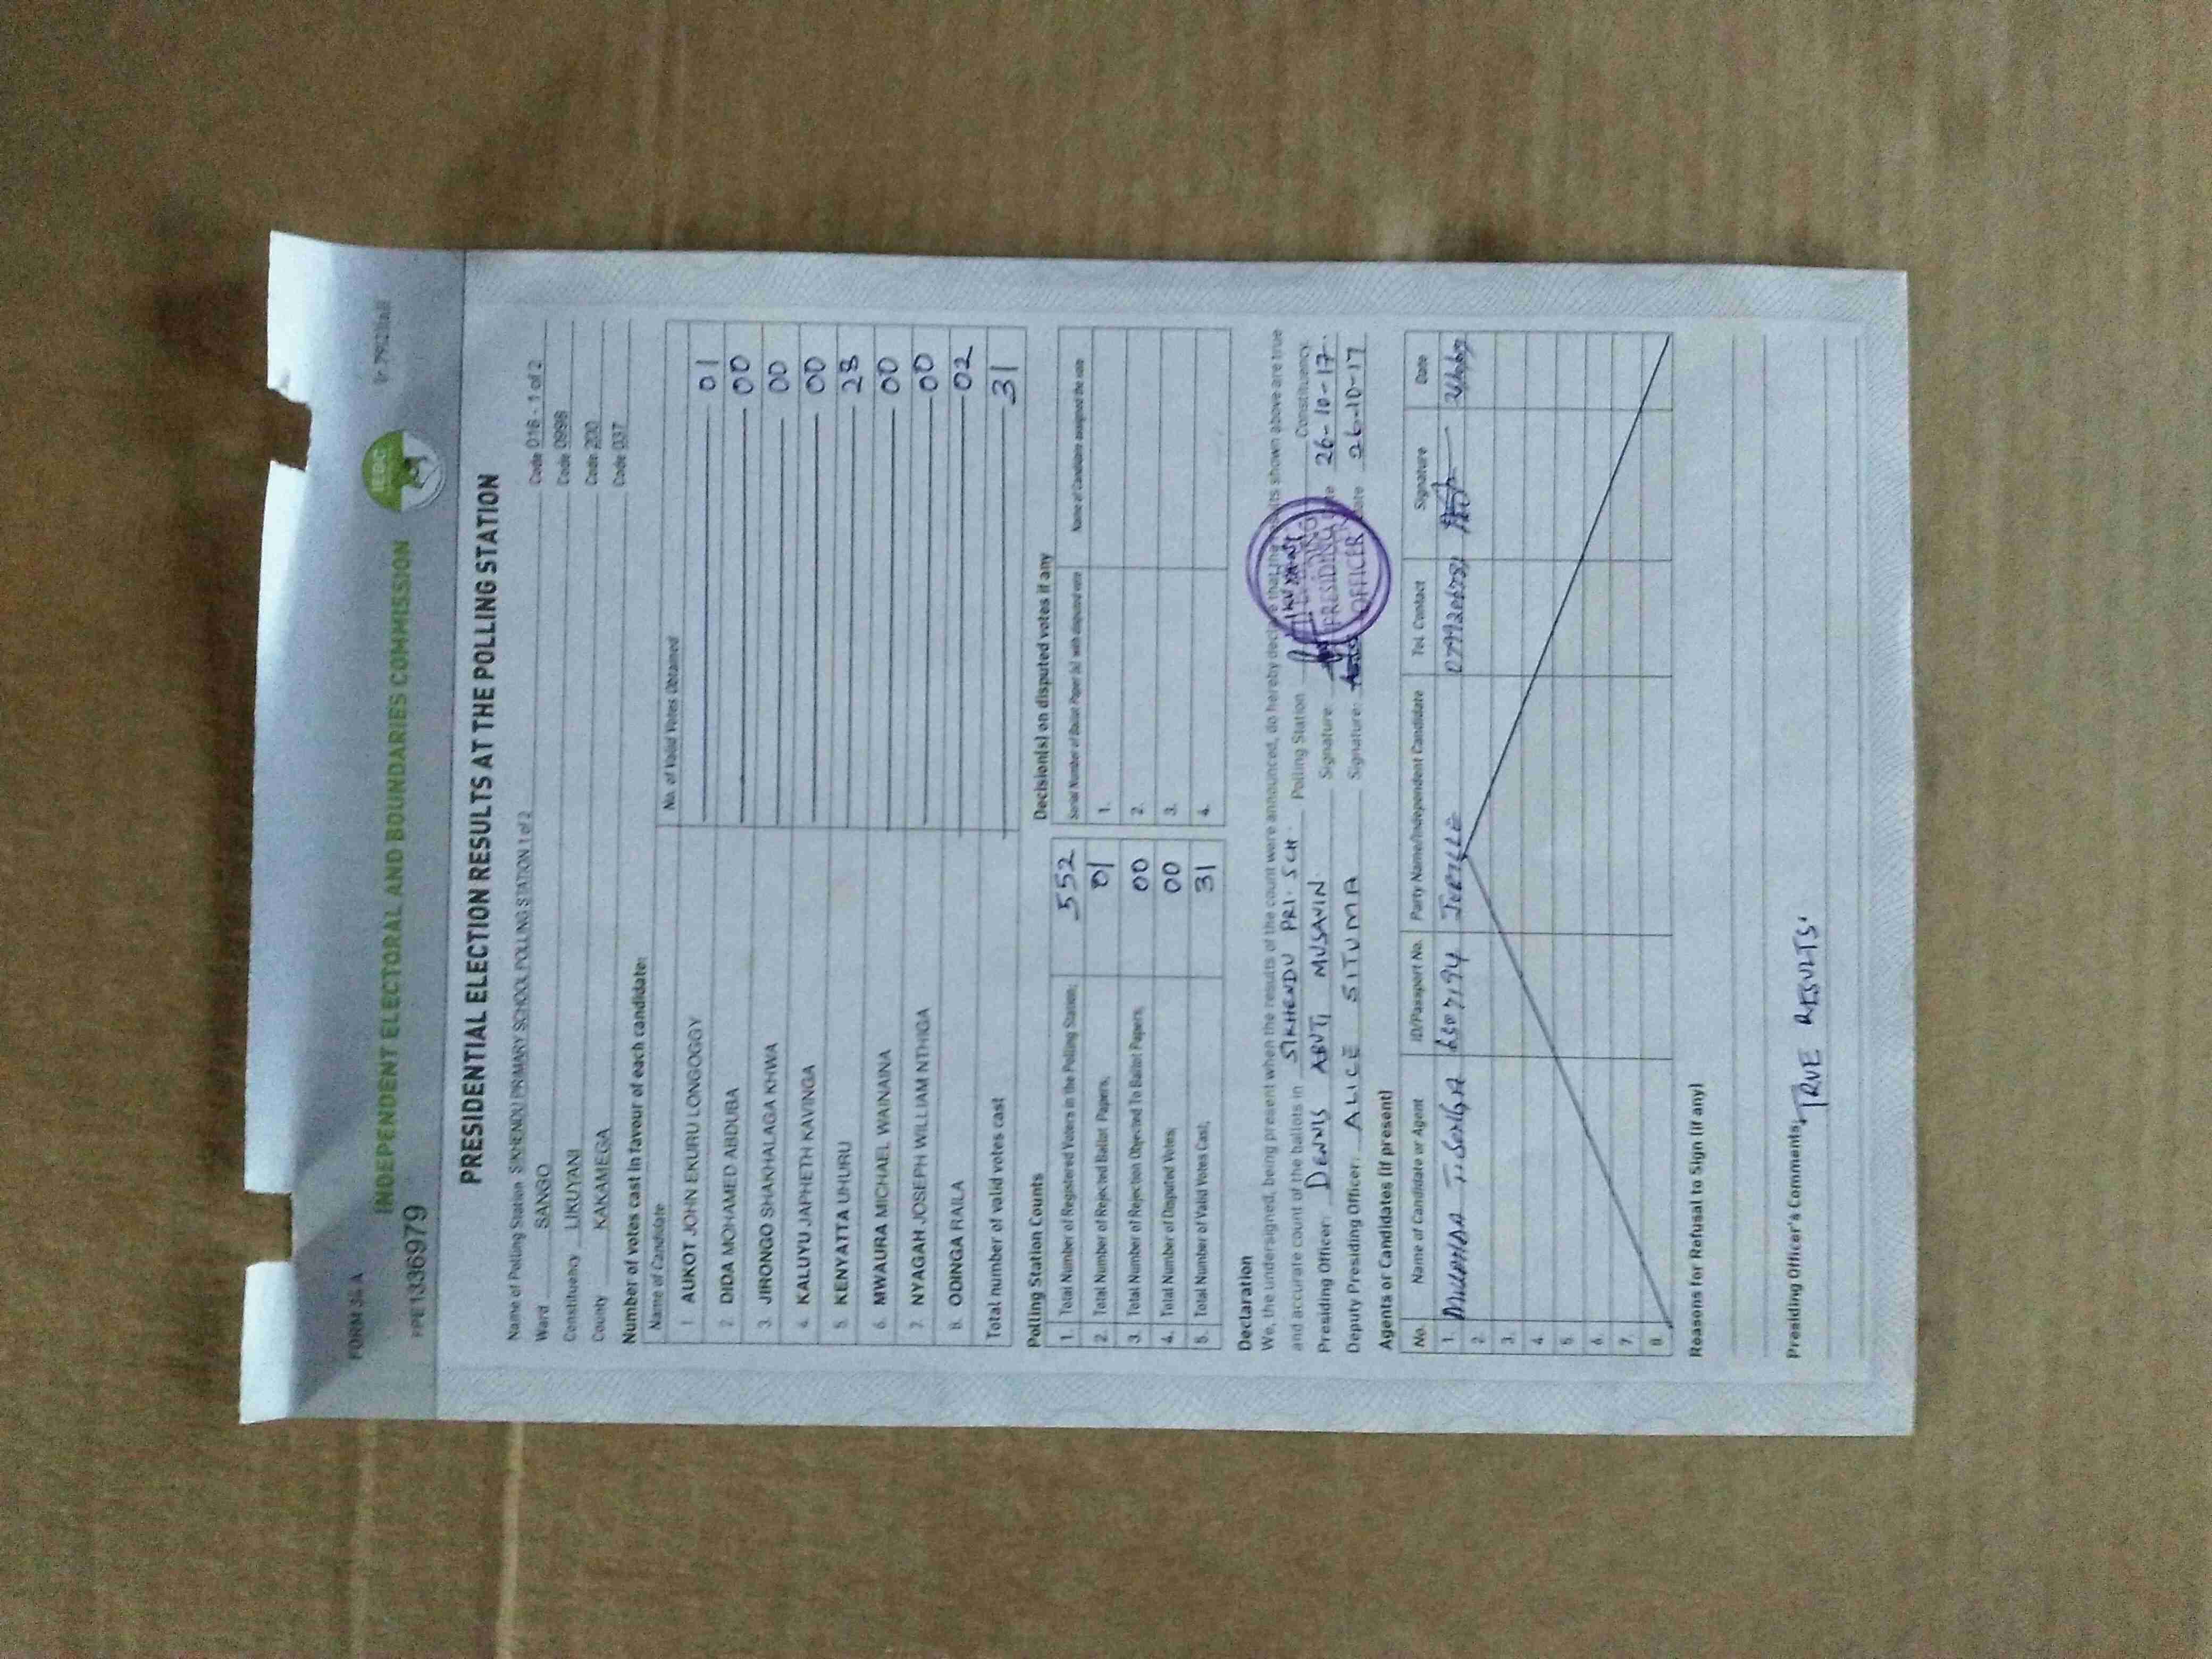 FORM 34 A
INDEPENDENT ELECTORAL AND BOUNDARIES COMMISSION
IEBC
PPE1336979
PRESIDENTIAL ELECTION RESULTS AT THE POLLING STATION
Name of Polling Station SIKHENDU PRIMARY SCHOOL POLLING STATION 1 of 2 Code 016 - 1 of 2
Ward SANGO Code 0998
Constituency LIKUYANI Code 200
County KAKAMEGA Code 037
Number of votes cast in favour of each candidate:
Name of Candidate No. of Valid Votes Obtained
1 AUKOT JOHN EKURU LONGOGGY 01
2. DIDA MOHAMED ABDUBA 00
3. JIRONGO SHAKHALAGA KHWA 00
4. KALUYU JAPHETH KAVINGA 00
5. KENYATTA UHURU 28
6. MWAURA MICHAEL WAINAINA 00
7. NYAGAH JOSEPH WILLIAM NTHIGA 00
8. ODINGA RAILA 02
Total number of valid votes cast 31
Polling Station Counts Decision(s) on disputed votes if any
Serial Number of Ballot Paper (s) with disputed vote Name of Candidate assigned the vote
1. Total Number of Registered Voters in the Polling Station; 552 1.
2. Total Number of Rejected Ballot Papers; 01 2.
3. Total Number of Rejection Objected To Ballot Papers; 00 3.
4. Total Number of Disputed Votes; 00 4.
5. Total Number of Valid Votes Cast; 31
Declaration
We, the undersigned, being present when the results of the count were announced, do hereby declare that the results shown above are true
and accurate count of the ballots in SIKHENDU PRI. SCH. Polling Station Constituency
Presiding Officer: DENNIS ABUTI MUSAVIN. Signature: Date 26-10-17
Deputy Presiding Officer: ALICE SITUMA Signature: Date 26-10-17
PRESIDING OFFICER
Agents or Candidates (if present)
No. Name of Candidate or Agent ID/Passport No. Party Name/Independent Candidate Tel. Contact Signature Date
1. JUBILEE
2
3.
4
5
6.
7.
8
Reasons for Refusal to Sign (if any)
Presiding Officer's Comments: TRUE RESULTS.